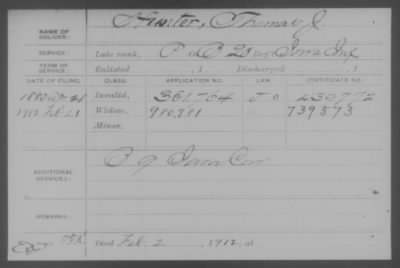 NAME OF SOLDIER: Hunter, Thomas J.
SERVICE: Late rank, P Co B 20 Reg't Iowa Inf
TERM OF SERVICE: Enlisted , 1 Discharged , 1
DATE OF FILING. CLASS. APPLICATION NO. LAW. CERTIFICATE NO.
1880 21 Invalid, 361.764 439.772
1912 Feb 21 Widow, 980.981 739573
Minor,
ADDITIONAL SERVICES: C 9 Iowa Cav
REMARKS:
Died Feb 2 , 1912, at